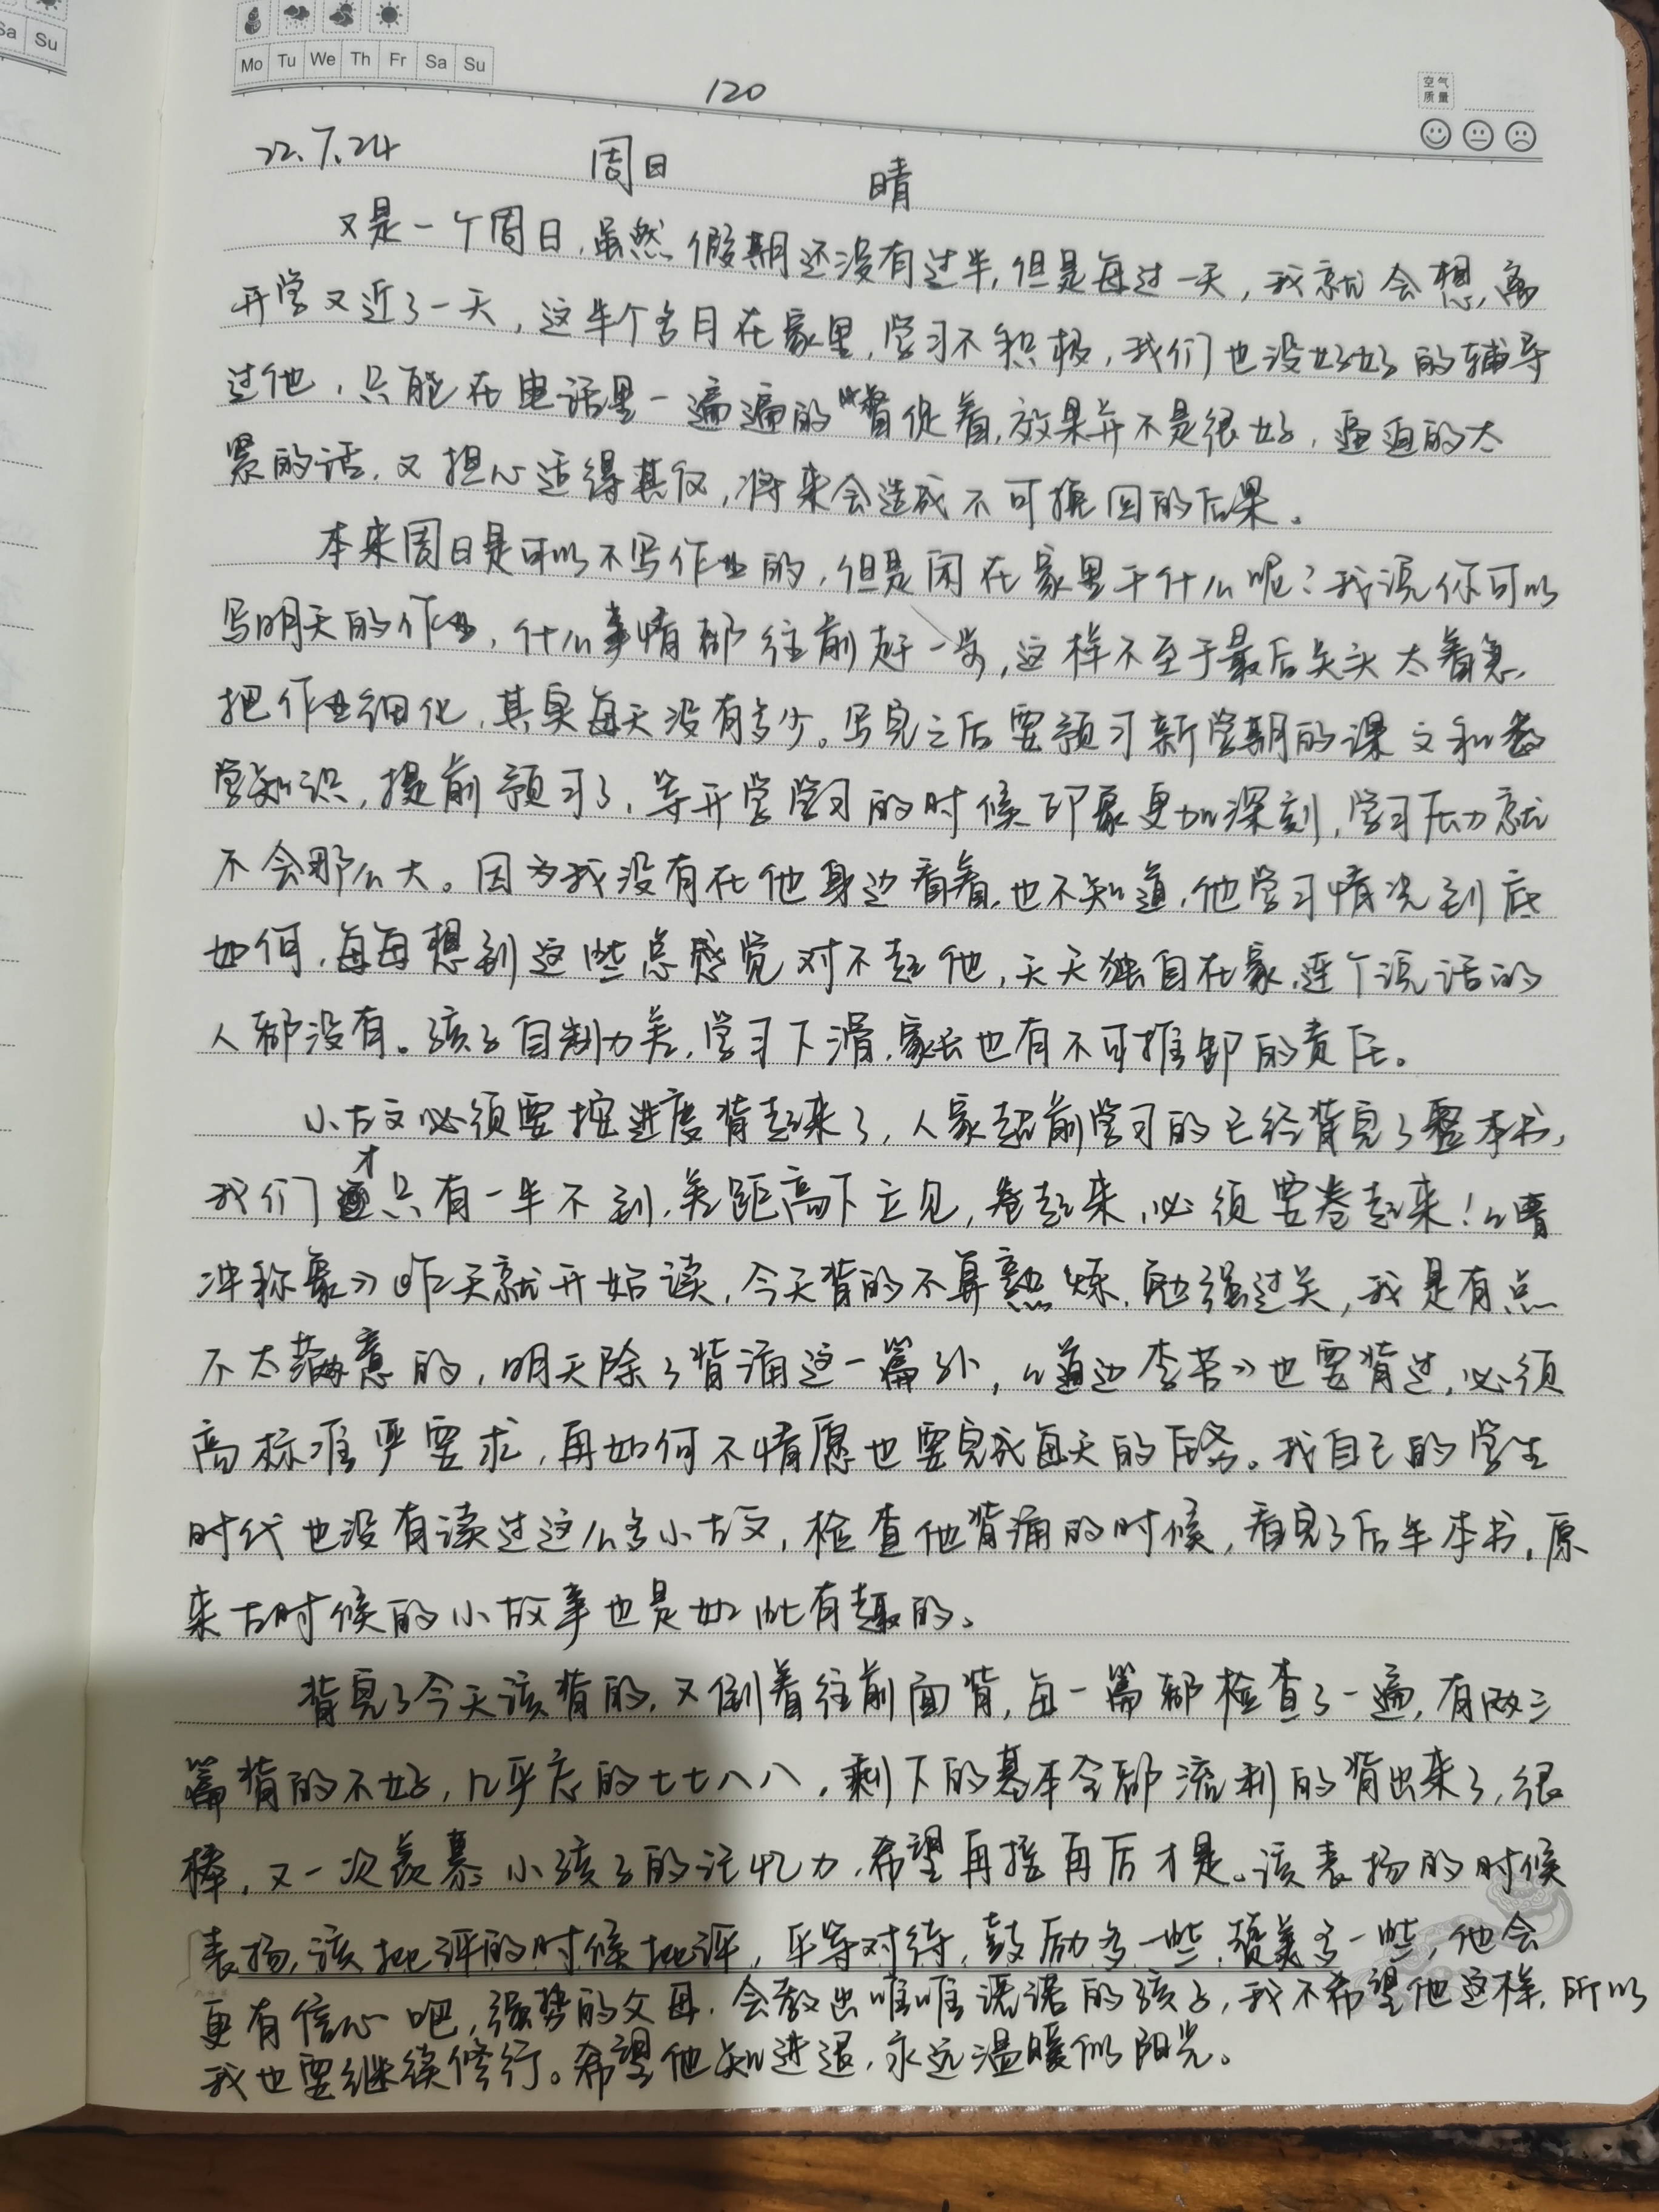 Sa Su
Mo Tu We Th Fr Sa Su
120
空气
质量
22.7.24 周日 晴
又是一个周日,虽然假期还没有过半,但是每过一天,我就会想,离
开学又近了一天,这半个多月在家里,学习不积极,我们也没好好的辅导
过他,只能在电话里一遍遍的督促着,效果并不是很好,逼迫的太
紧的话,又担心适得其反,将来会造成不可挽回的后果。
本来周日是可以不写作业的,但是闲在家里干什么呢?我说你可以
写明天的作业,什么事情都往前赶一步,这样不至于最后关头太着急,
把作业细化,其实每天没有多少。写完之后要预习新学期的课文和数
学知识,提前预习了,等开学学习的时候印象更加深刻,学习压力就
不会那么大。因为我没有在他身边看着,也不知道,他学习情况到底
如何,每每想到这些总感觉对不起他,天天独自在家,连个说话的
人都没有。孩子自制力差,学习下滑,家长也有不可推卸的责任。
小古文必须要按进度背起来了,人家超前学习的已经背完了整本书,
我们才只有一半不到,差距高下立见,卷起来,必须要卷起来!《曹
冲称象》昨天就开始读,今天背的不算熟练,勉强过关,我是有点
不太满意的,明天除了背诵这一篇外,《道边李苦》也要背过,必须
高标准严要求,再如何不情愿也要完成每天的任务。我自己的学生
时代也没有读过这么多小古文,检查他背诵的时候,看完了后半本书,原
来古时候的小故事也是如此有趣的。
背完了今天该背的,又倒着往前面背,每一篇都检查了一遍,有两三
篇背的不好,几乎忘的七七八八,剩下的基本全都流利的背出来了,很
棒,又一次羡慕小孩子的记忆力,希望再接再厉才是。该表扬的时候
表扬,该批评的时候批评,平等对待,鼓励多一些,赞美多一些,他会
更有信心吧,强势的父母,会教出唯唯诺诺的孩子,我不希望他这样,所以
我也要继续修行。希望他知进退,永远温暖似阳光。